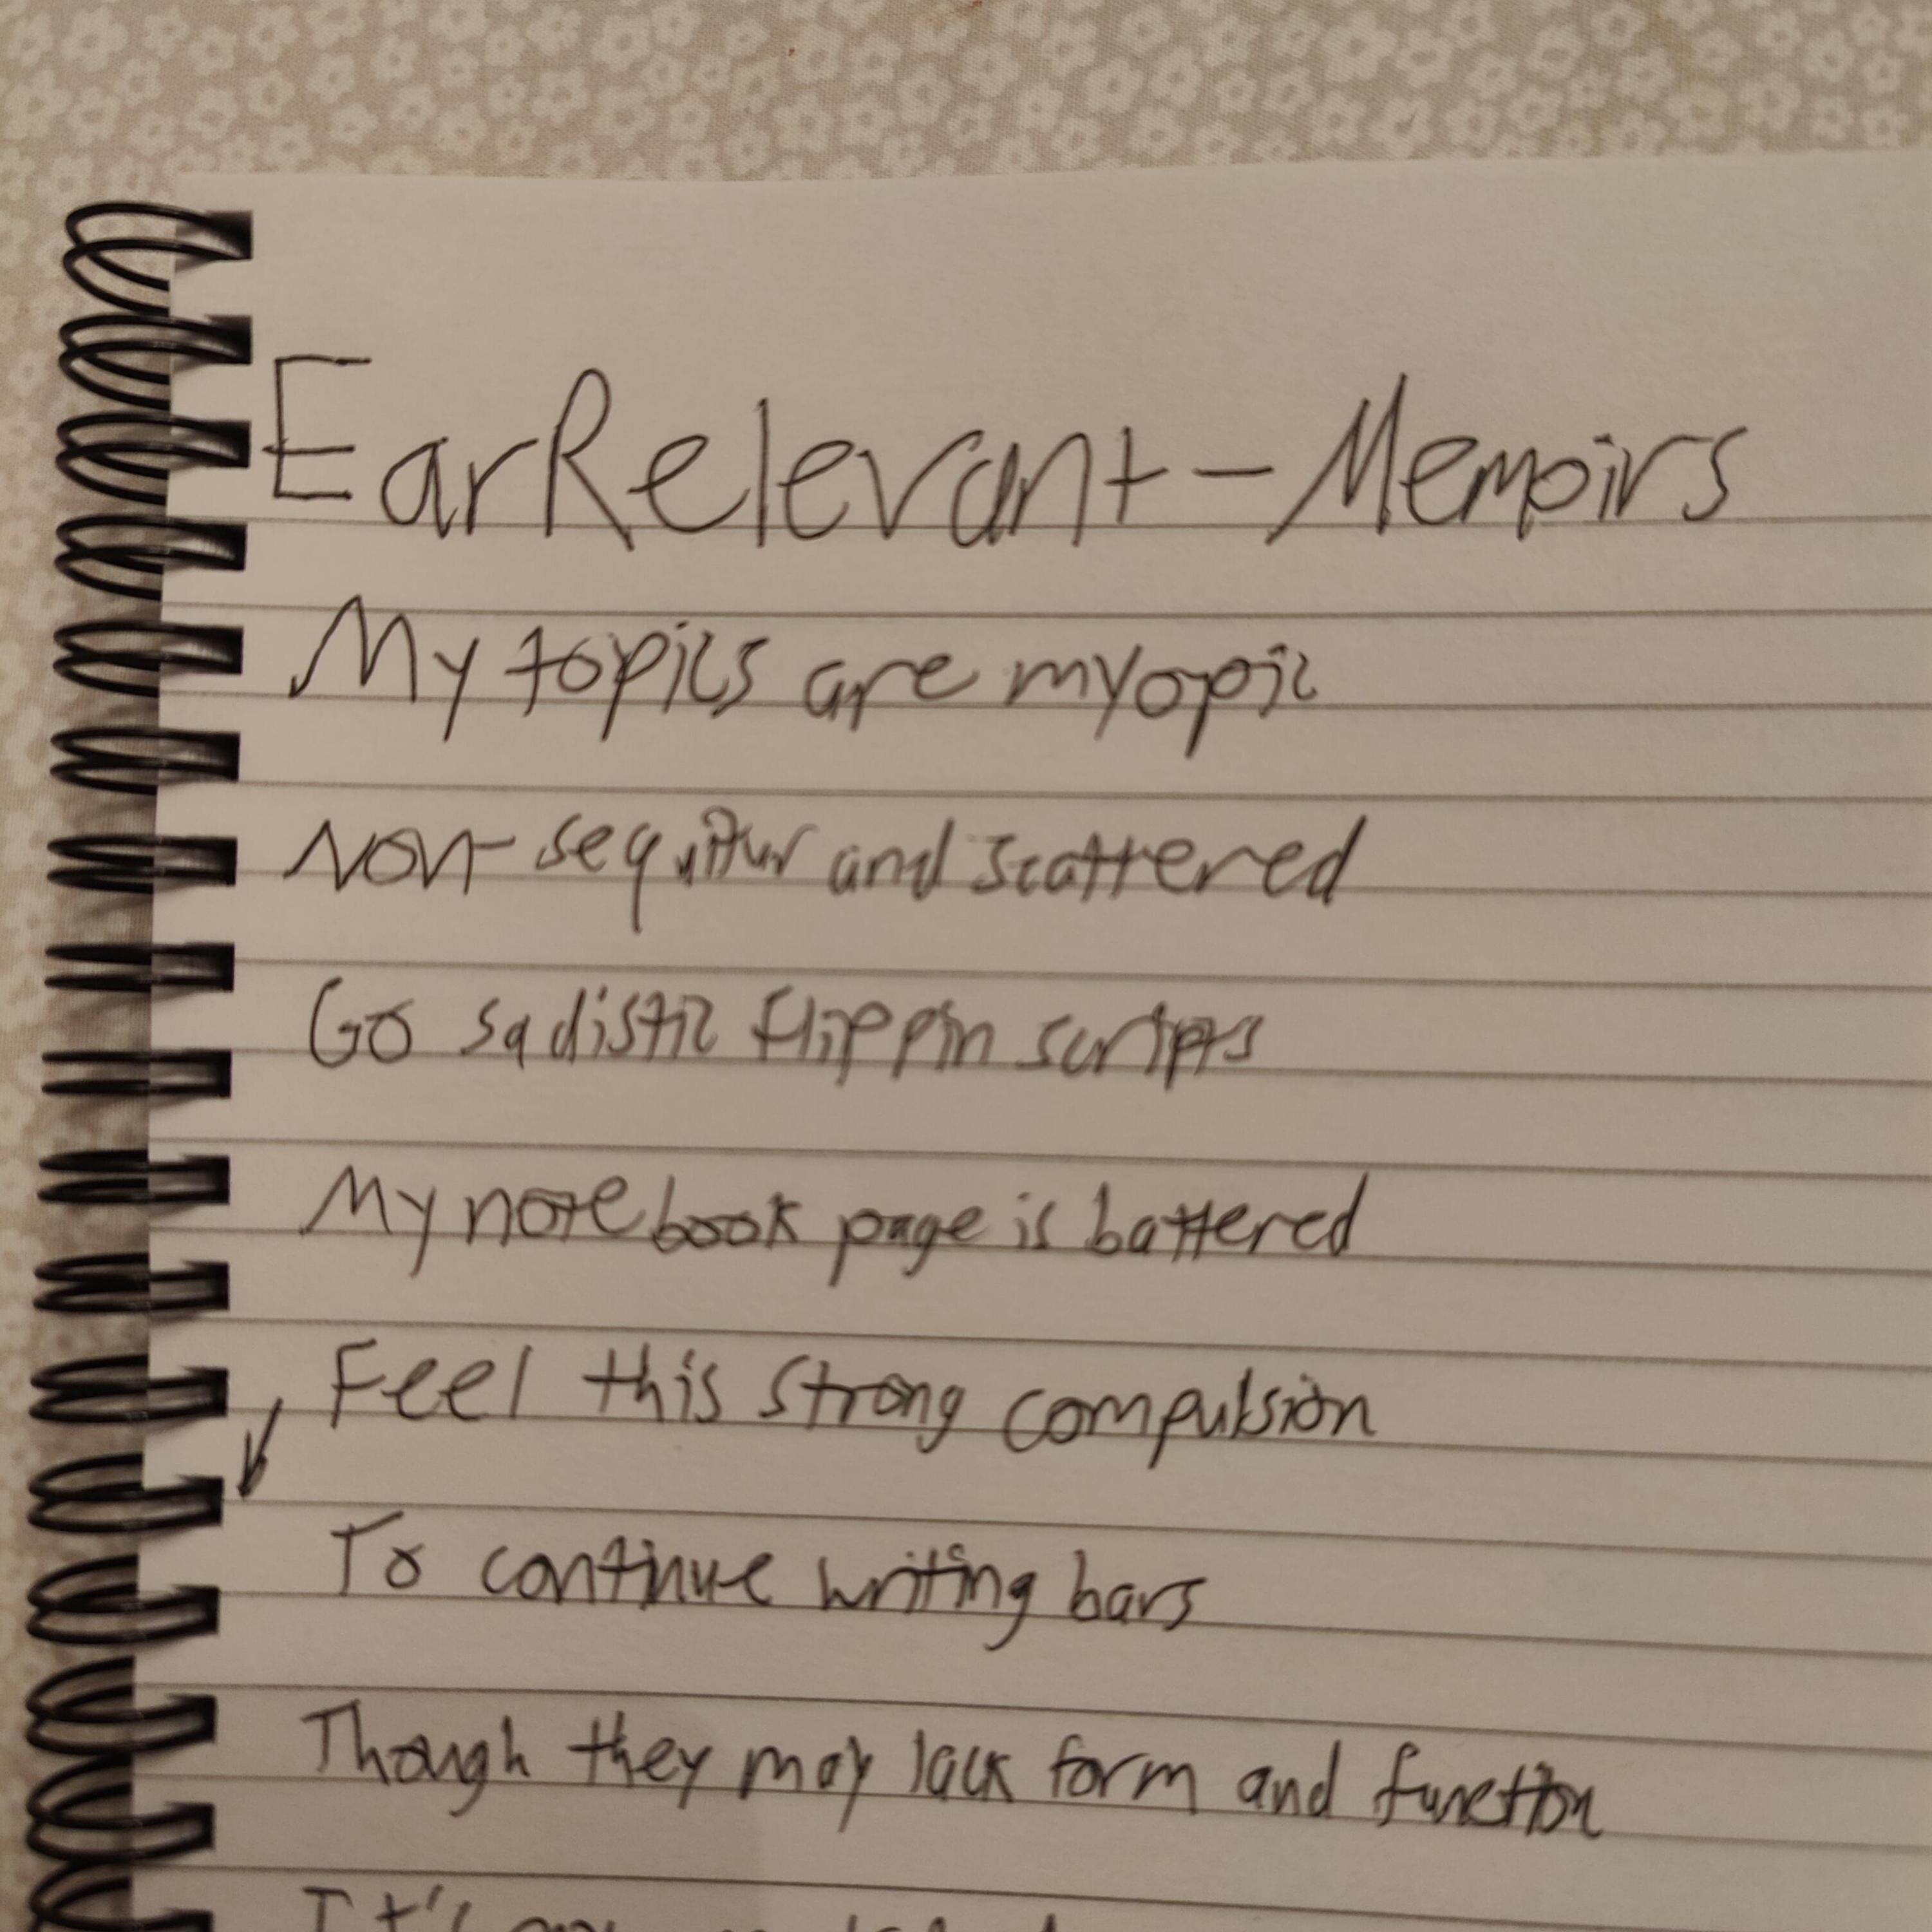 EarRelevant - Memoirs
My topics are myopic
Non-sequitur and scattered
Go sadistic flippin scripts
My notebook page is battered
Feel this strong compulsion
To continue writing bars
Though they may lack form and function
It's